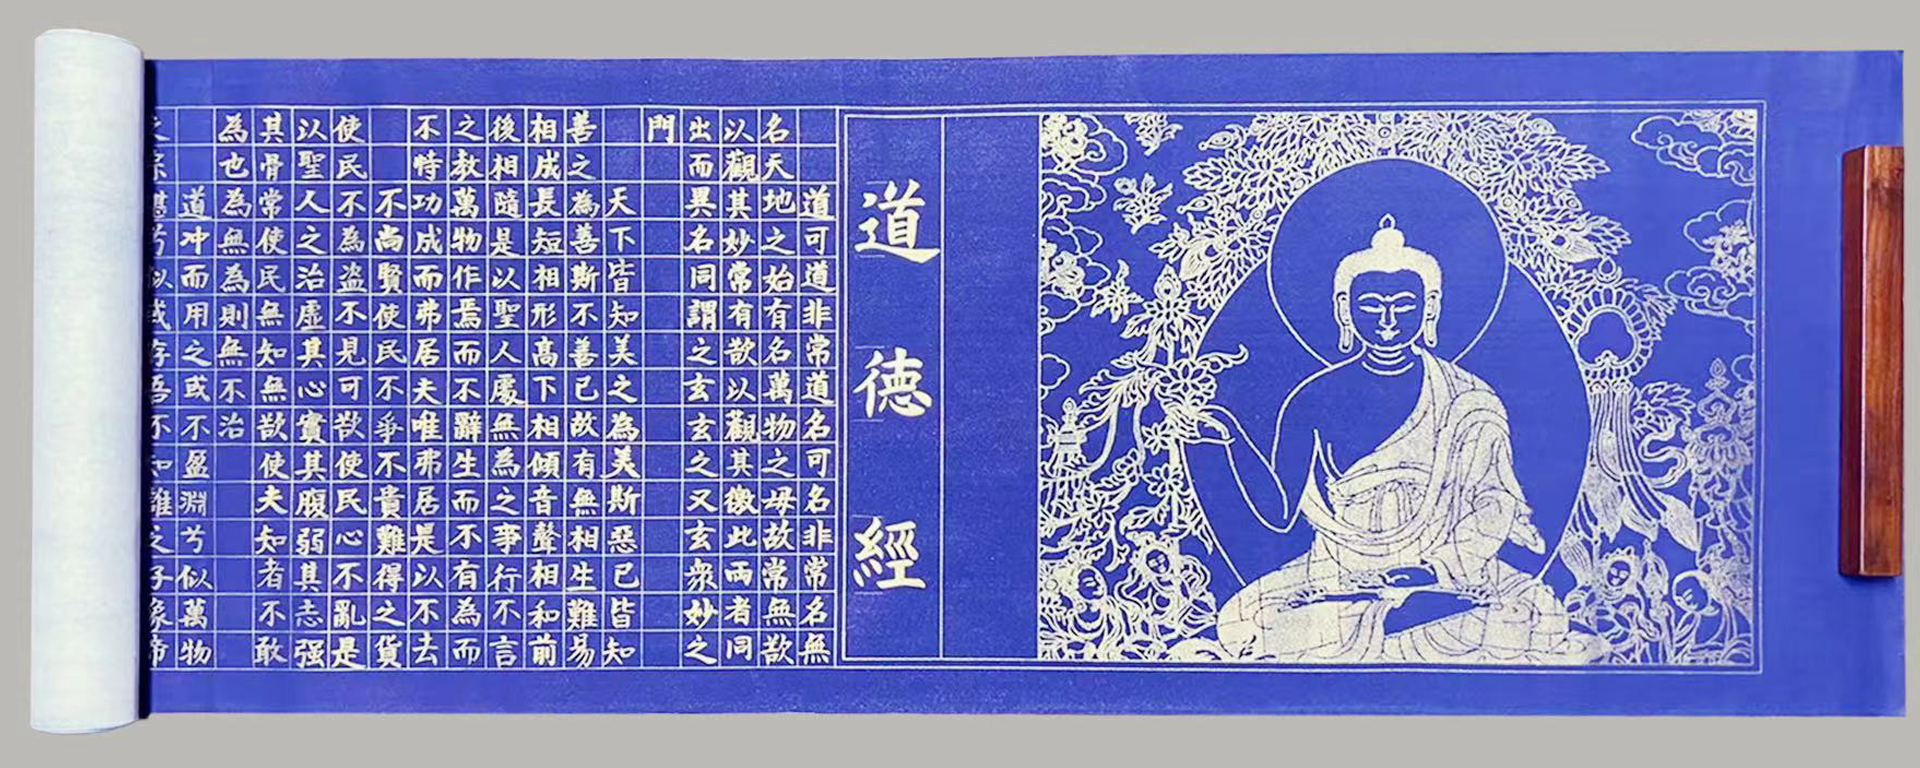 道德經
道可道非常道名可名非常名無
名天地之始有名萬物之母故常無欲
以觀其妙常有欲以觀其徼此兩者同
出而異名同謂之玄玄之又玄衆妙之
門
天下皆知美之為美斯惡已皆知
善之為善斯不善已故有無相生難易
相成長短相形高下相傾音聲相和前
後相隨是以聖人處無為之事行不言
之教萬物作焉而不辭生而不有為而
不特功成而弗居夫唯弗居是以不去
不尚賢使民不爭不貴難得之貨
使民不為盜不見可欲使民心不亂是
以聖人之治虛其心實其腹弱其志强
其骨常使民無知無欲使夫知者不敢
為也為無為則無不治
道冲而用之或不盈淵兮似萬物
之宗湛兮似或存吾不知誰之子象帝